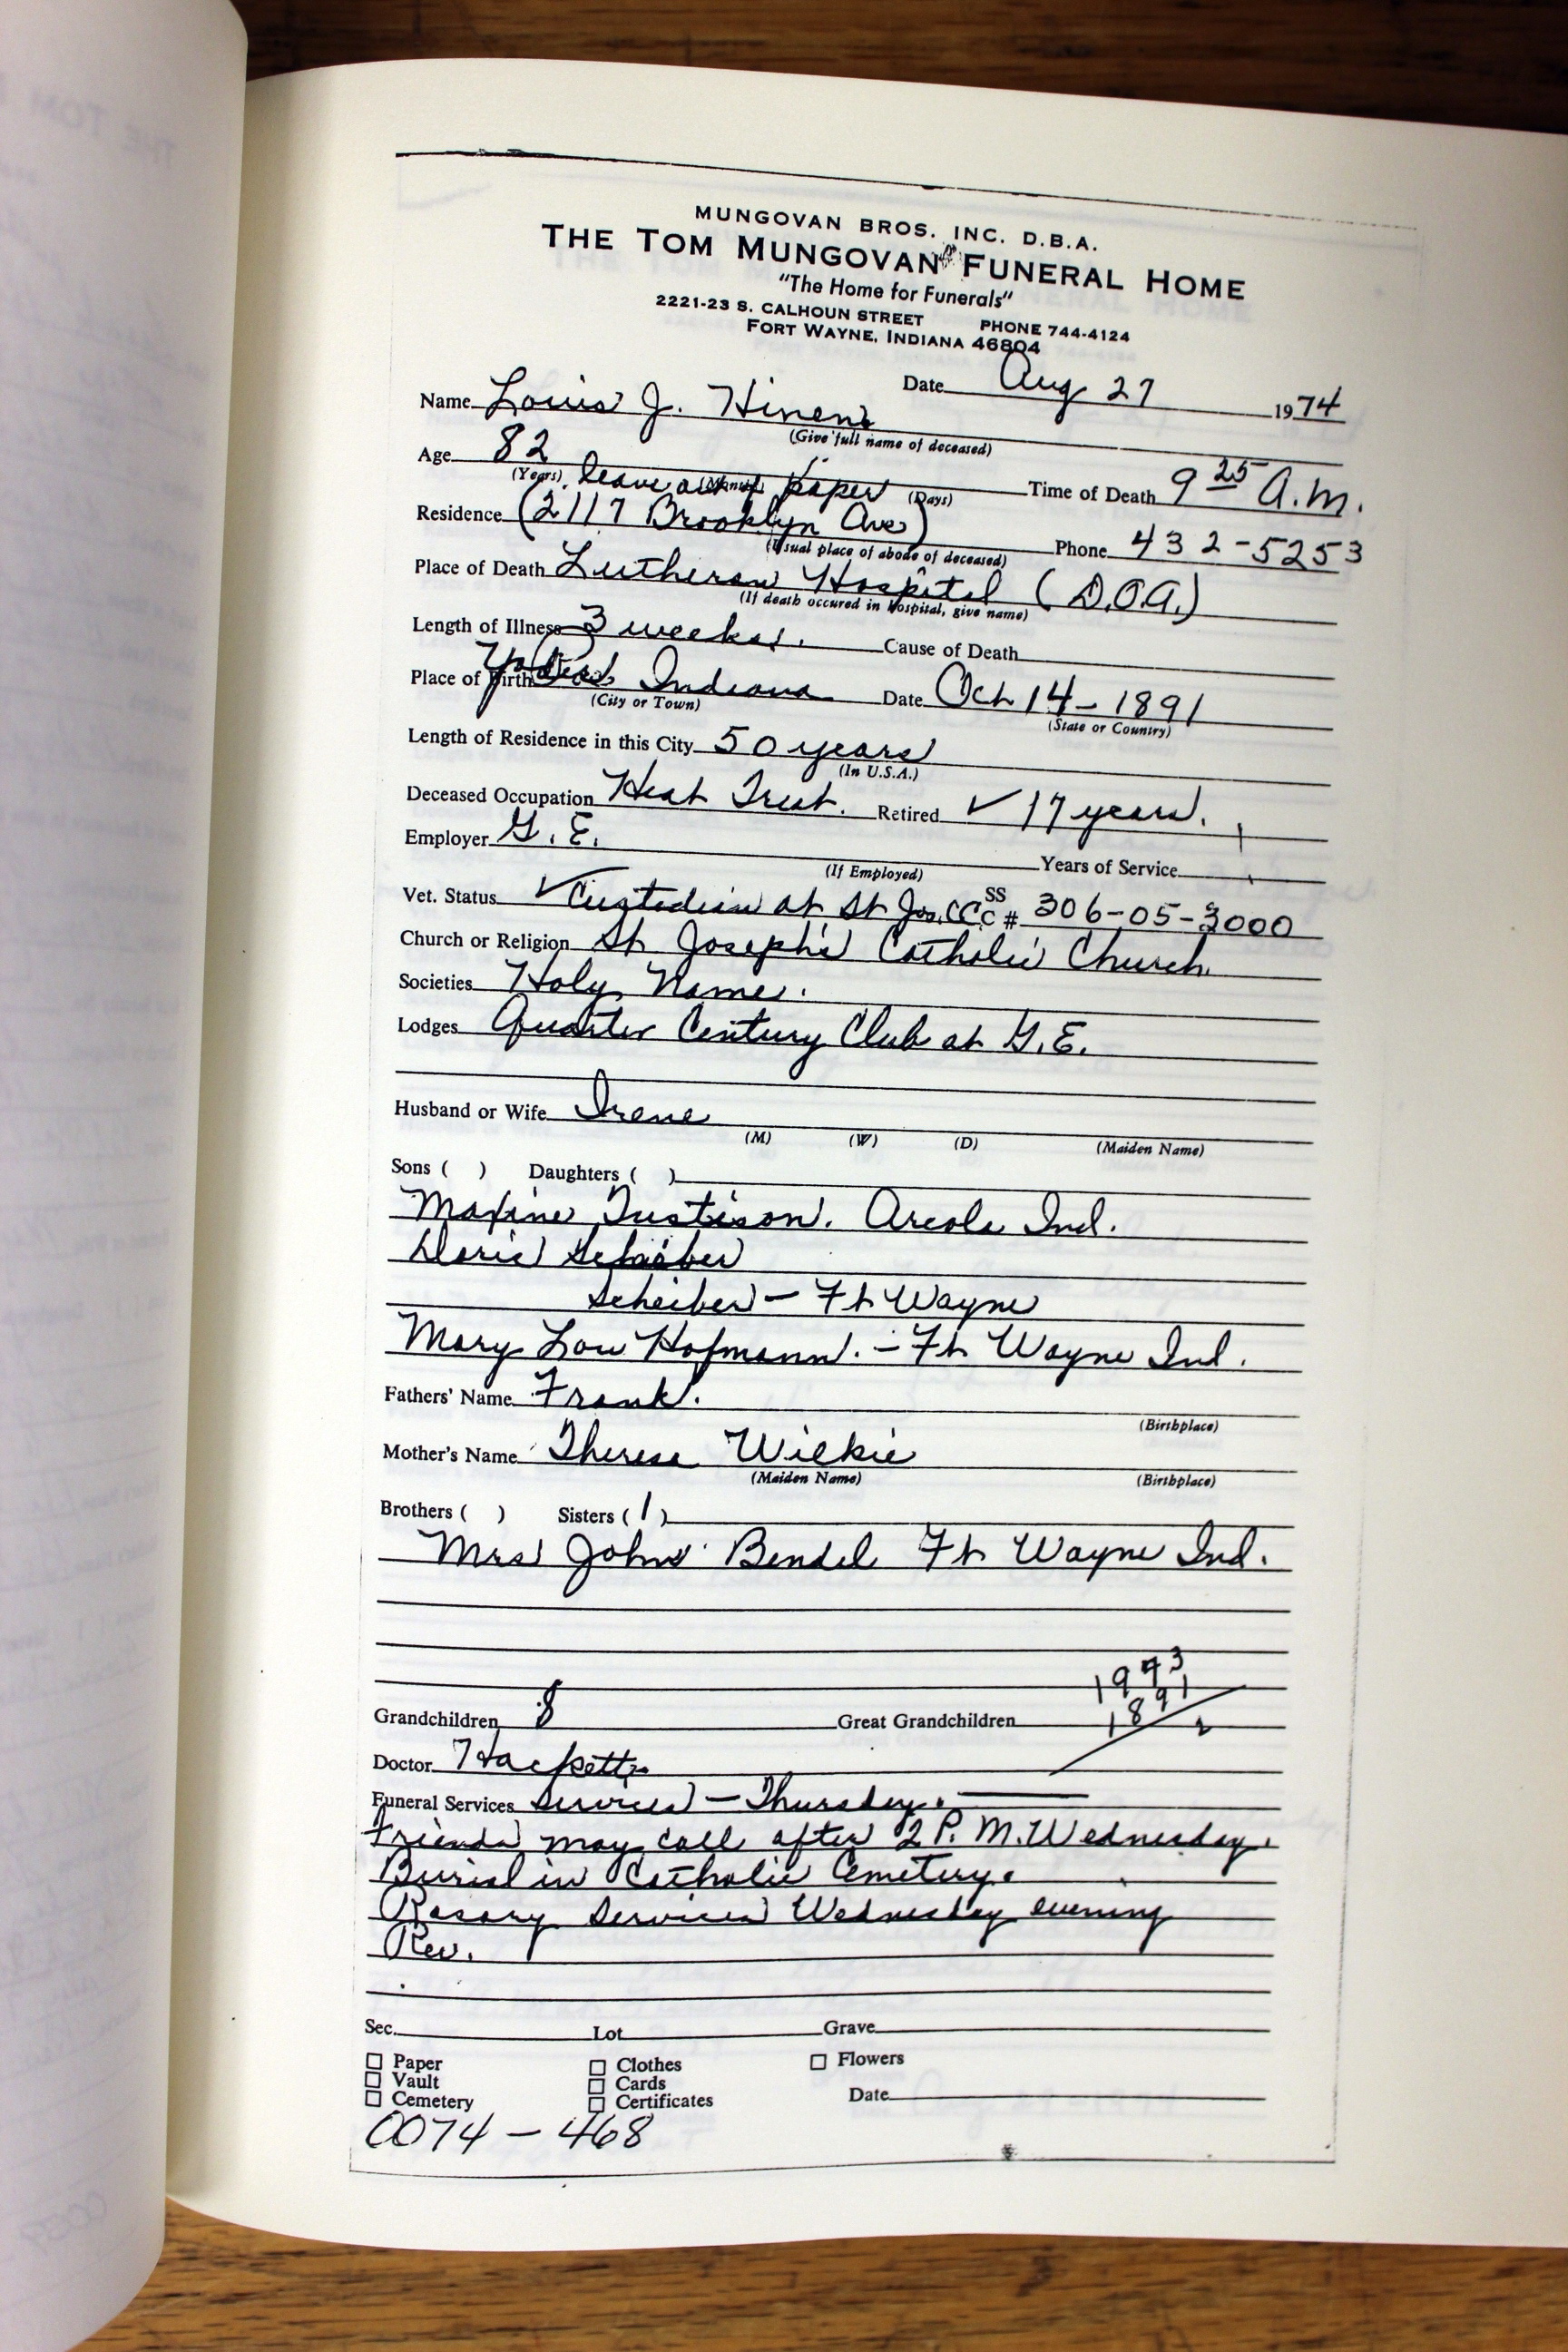 MUNGOVAN BROS. INC. D.B.A.
THE TOM MUNGOVAN FUNERAL HOME
"The Home for Funerals"
2221-23 S. CALHOUN STREET PHONE 744-4124
FORT WAYNE, INDIANA 46804
Date Aug 27 1974
Name Louis J. Hinen
(Give full name of deceased)
Age 82 Time of Death 9 25 A.M.
(Years) leave out of paper (Days)
Residence (2117 Brooklyn Ave) Phone 432-5253
(Usual place of abode of deceased)
Place of Death Lutheran Hospital (D.O.A.)
(If death occured in hospital, give name)
Length of Illness 3 weeks. Cause of Death
Place of Birth Indiana Date Oct 14-1891
(City or Town) (State or Country)
Length of Residence in this City 50 years
(In U.S.A.)
Deceased Occupation Heat Treat. Retired ✓ 17 years.
Employer G.E. Years of Service
(If Employed)
Vet. Status ✓ Custodian at St Jos. CCC SS # 306-05-3000
Church or Religion St Joseph's Catholic Church
Societies Holy Name.
Lodges Quarter Century Club at G.E.
Husband or Wife Irene
(M) (W) (D) (Maiden Name)
Sons ( ) Daughters ( )
Maxine Tustison. Arcola Ind.
Doris
Scheiber - Ft Wayne
Mary Lou Hofmann. - Ft Wayne Ind.
Fathers' Name Frank.
(Birthplace)
Mother's Name Therese Wilkie
(Maiden Name) (Birthplace)
Brothers ( ) Sisters ( 1 )
Mrs John Bendel Ft Wayne Ind.
1973
1891
Grandchildren 8 Great Grandchildren
Doctor Hackett
Funeral Services Services - Thursday.
Friends may call after 2 P.M. Wednesday.
Burial in Catholic Cemetery.
Rosary Services Wednesday evening
Rev.
Sec. Lot Grave
Paper Clothes Flowers
Vault Cards
Cemetery Certificates Date
0074-468